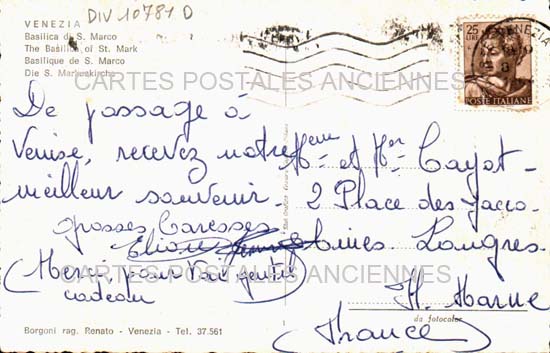 DIV 10781 D
VENEZIA
Basilica di S. Marco
The Basilica of St. Mark
Basilique de S. Marco
Die S. Markuskirche
25
LIRE
VENEZIA
POSTE ITALIANE
CARTES POSTALES ANCIENNES
De passage à
Venise, recevez notre
meilleur souvenir.
Grosses Caresses
Eliane
(Merci, pour vai gentil
cadeau
Meme et Mr Cayot
2 Place des Jaco
bines Langres
H. Marne
(France)
CARTES POSTALES ANCIENNES
da fotocolor
Borgoni rag. Renato - Venezia - Tel. 37.561